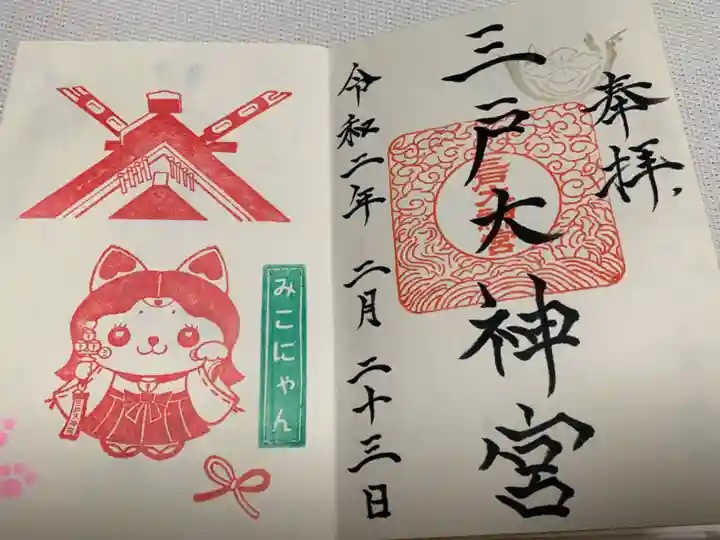 奉拝
三戸大神宮
令和二年 二月 二十三日
三戸大神宮
みこにゃん
三戸大神宮